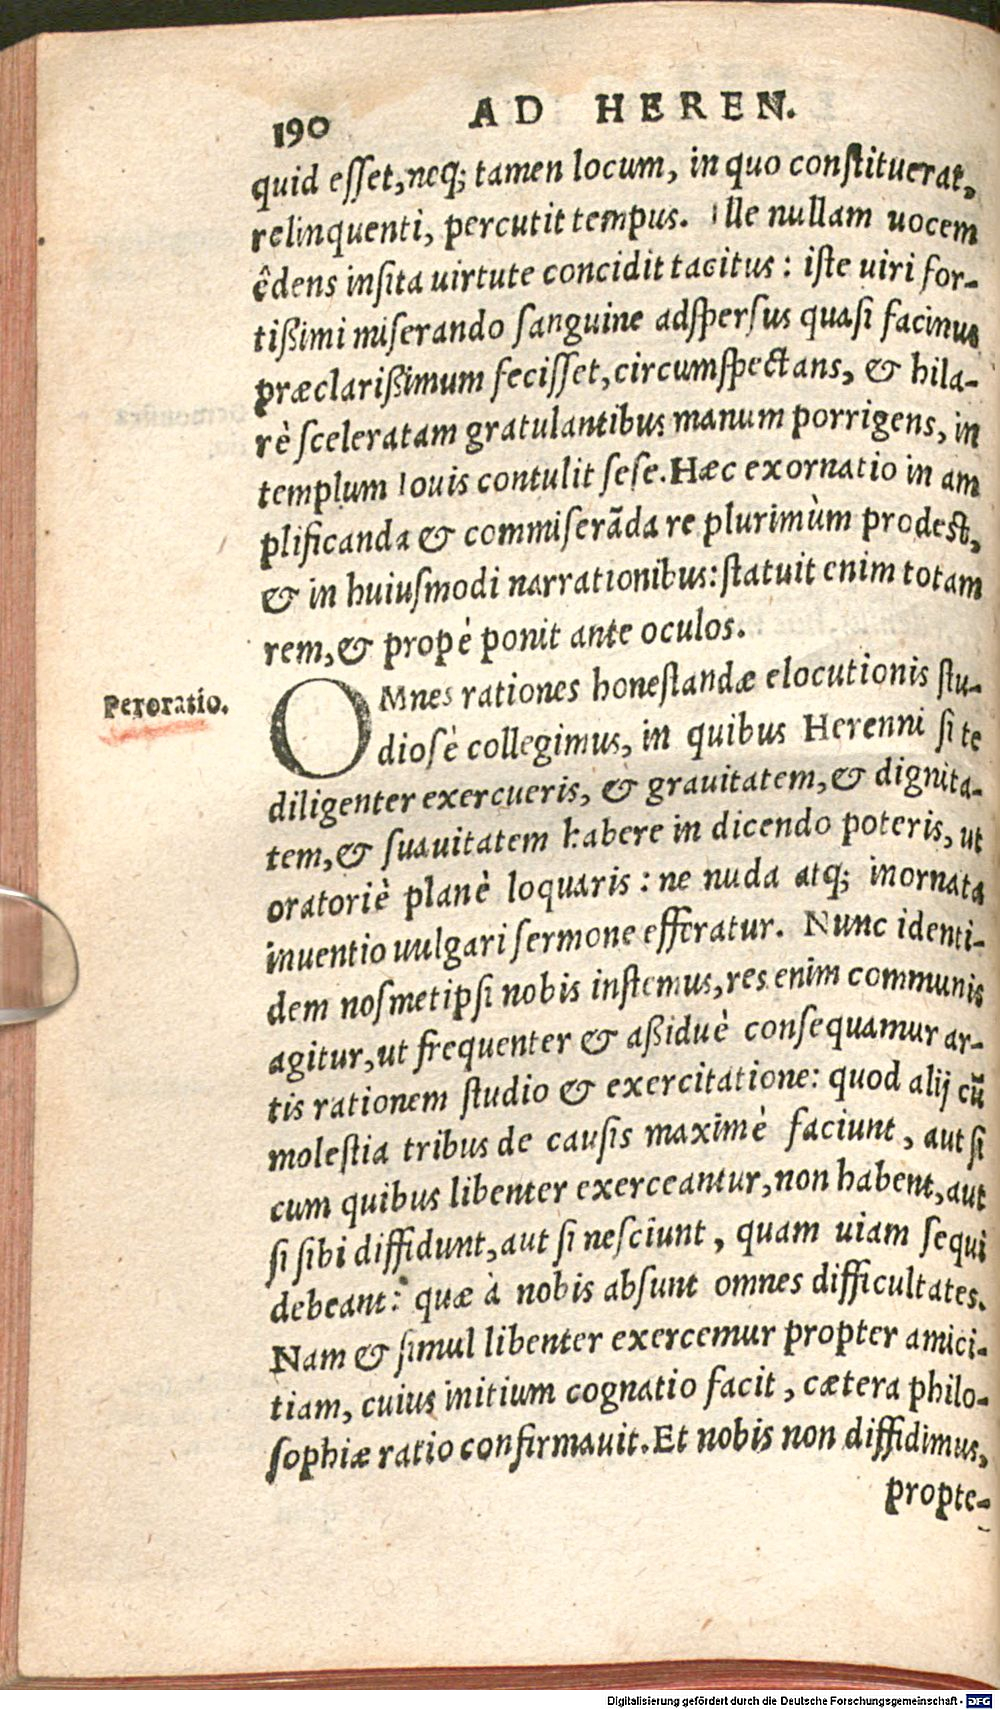 190 AD HEREN.
quid esſet, neq; tamen locum, in quo conſtituerat,
relinquenti, percutit tempus. Ille nullam uocem
êdens inſita uirtute concidit tacitus: iſte uiri for-
tißimi miſerando ſanguine adſperſus quaſi facinus
præclarißimum feciſſet, circumſpectans, & hila-
rè ſceleratam gratulantibus manum porrigens, in
templum Iouis contulit ſeſe. Hæc exornatio in am
plificanda & commiſerãda re plurimùm prodeſt,
& in huiuſmodi narrationibus: ſtatuit enim totam
rem, & propè ponit ante oculos.
Peroratio.
OMnes rationes honeſtandæ elocutionis ſtu-
dioſè collegimus, in quibus Herenni ſi te
diligenter exercueris, & grauitatem, & dignita-
tem, & ſuauitatem habere in dicendo poteris, ut
oratoriè planè loquaris: ne nuda atq; inornata
inuentio uulgari ſermone efferatur. Nunc identi-
dem noſmetipſi nobis inſtemus, res enim communis
agitur, ut frequenter & aßiduè conſequamur ar-
tis rationem ſtudio & exercitatione: quod alij cũ
moleſtia tribus de cauſis maximè faciunt, aut ſi
cum quibus libenter exerceantur, non habent, aut
ſi ſibi diffidunt, aut ſi neſciunt, quam uiam ſequi
debeant: quæ à nobis abſunt omnes difficultates.
Nam & ſimul libenter exercemur propter amici-
tiam, cuius initium cognatio facit, cætera philo-
ſophiæ ratio confirmauit. Et nobis non diffidimus,
propte-
Digitalisierung gefördert durch die Deutsche Forschungsgemeinschaft - DFG